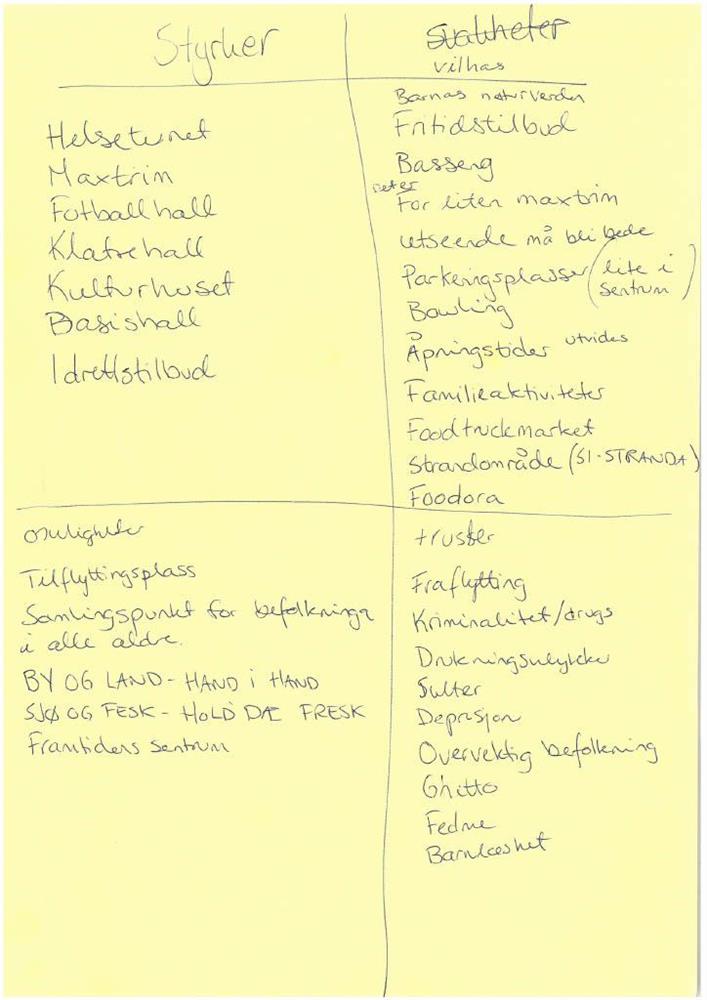 Styrker
Helsetunet
Maxtrim
Fotballhall
Klatrehall
Kulturhuset
Basishall
Idrettstilbud
Svakheter
vilhas
Barnas naturverden
Fritidstilbud
Basseng
For liten maxtrim
utseende må bli bede
Parkeringsplasser (lite i sentrum)
Bowling
Åpningstider utvides
Familieaktiviteter
Foodtruckmarket
Strandområde (SI-STRANDA)
Foodora
muligheter
Tilflyttingsplass
Samlingspunkt for befolkninga
i alle aldre.
BY OG LAND - HAND i HAND
SJØ OG FESK - HOLD DÆ FRESK
Framtidens sentrum
trusler
Fraflytting
Kriminalitet/drugs
Drukningsulykker
Sulter
Depresjon
Overvektig befolkning
Ghitto
Fedme
Barnløshet